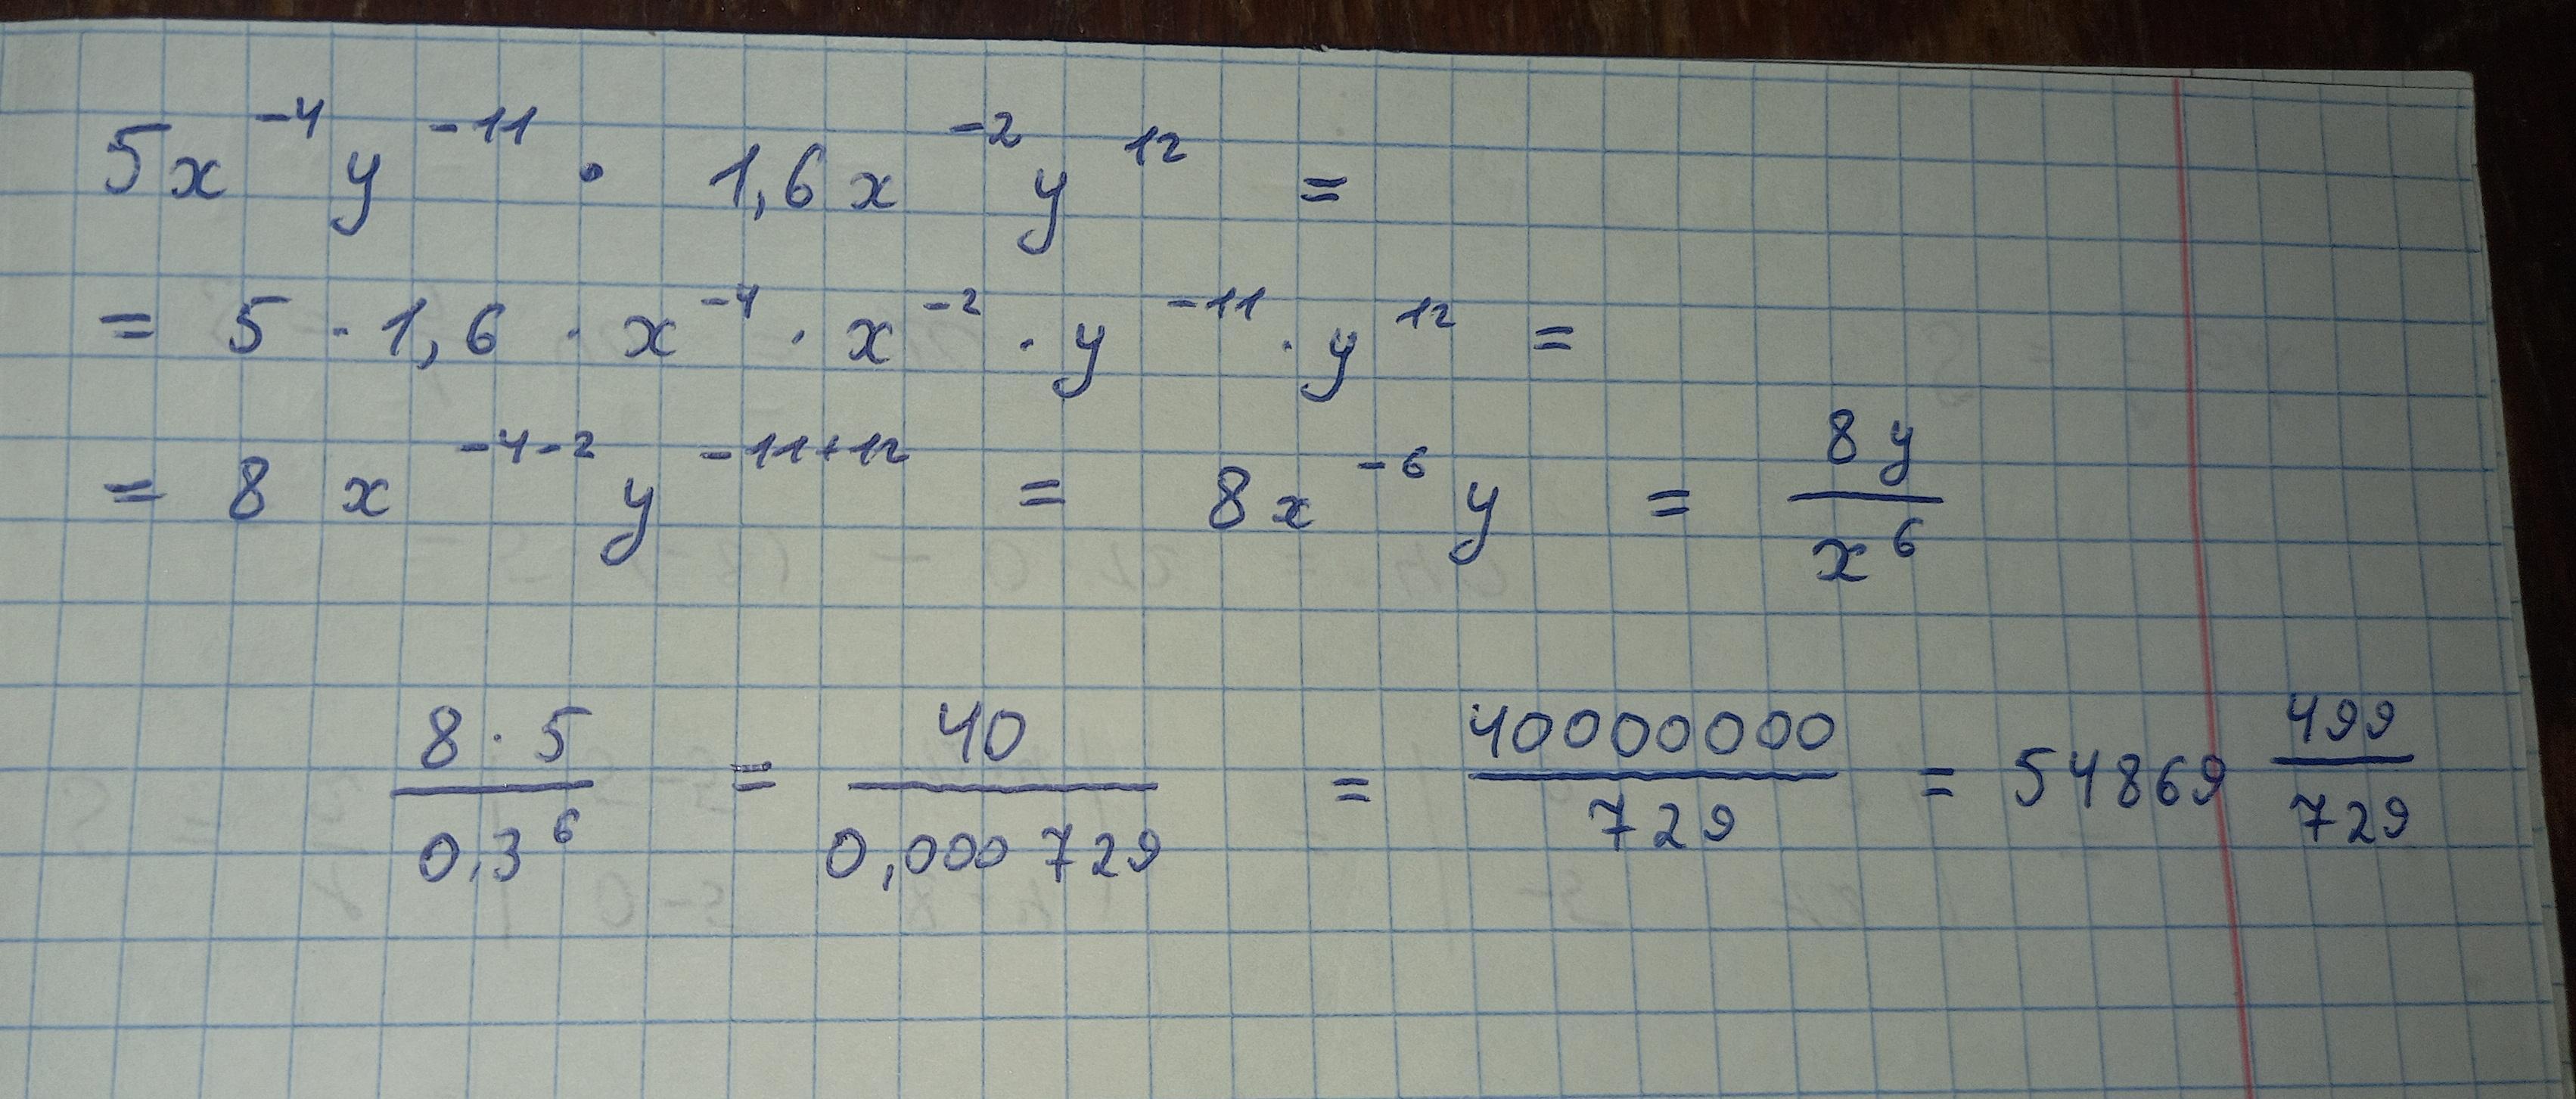 5x⁻⁴y⁻¹¹ · 1,6x⁻²y¹² =
= 5 · 1,6 · x⁻⁴ · x⁻² · y⁻¹¹ · y¹² =
= 8 x⁻⁴⁻² y⁻¹¹⁺¹² = 8x⁻⁶y = 8y/x⁶
8 · 5/0,3⁶ = 40/0,000729 = 40000000/729 = 54869 499/729